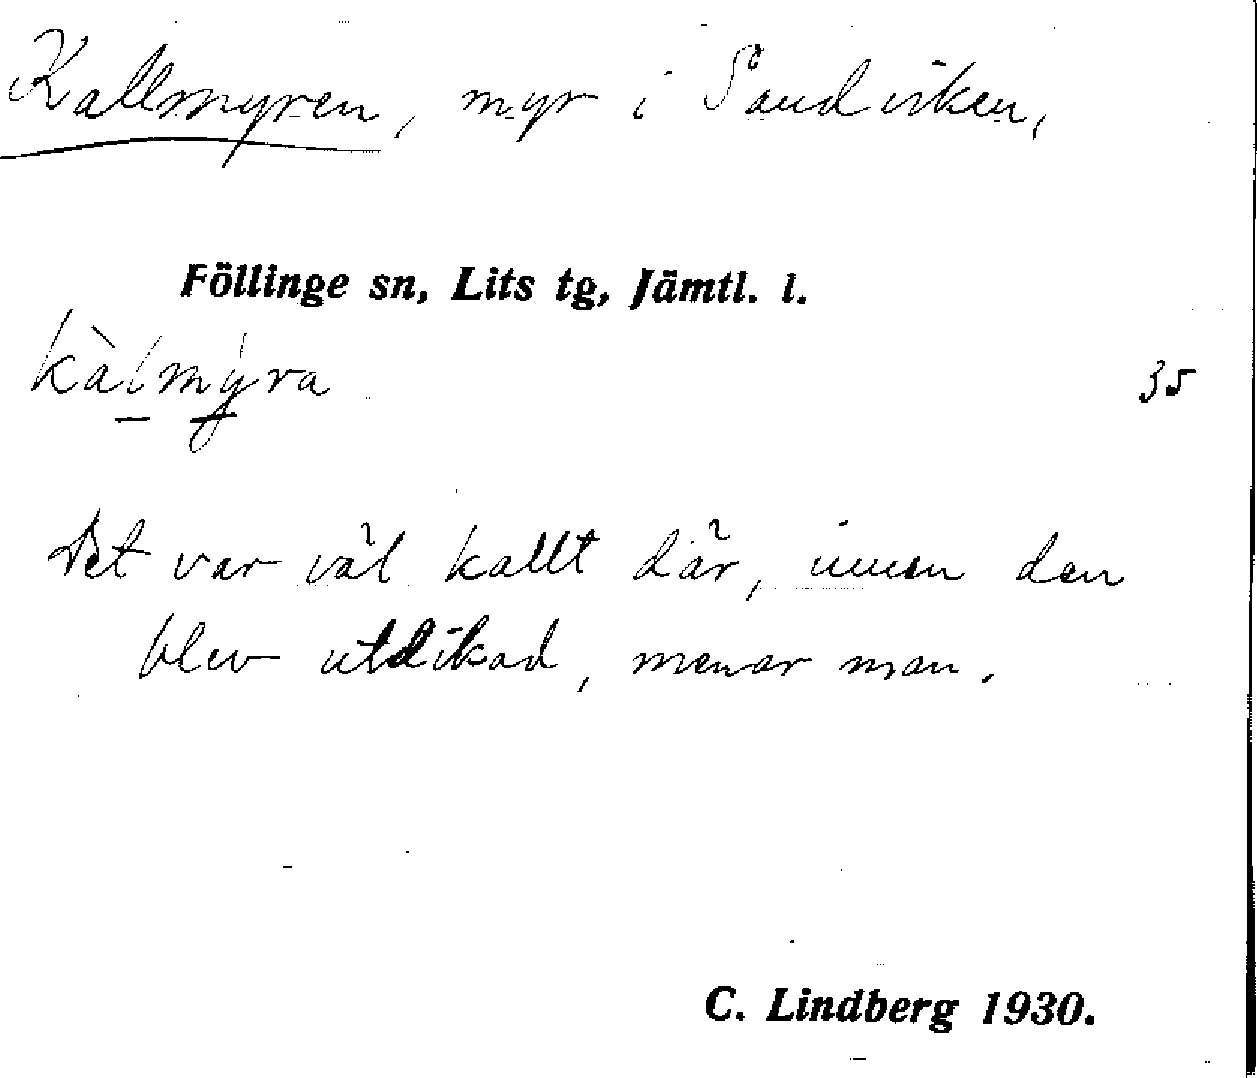 Kallmyren, myr i Sandviken,
Föllinge sn, Lits tg, Jämtl. l.
kàlmýra
35
Det var väl kallt där, innan den
blev utdikad, menar man.
C. Lindberg 1930.